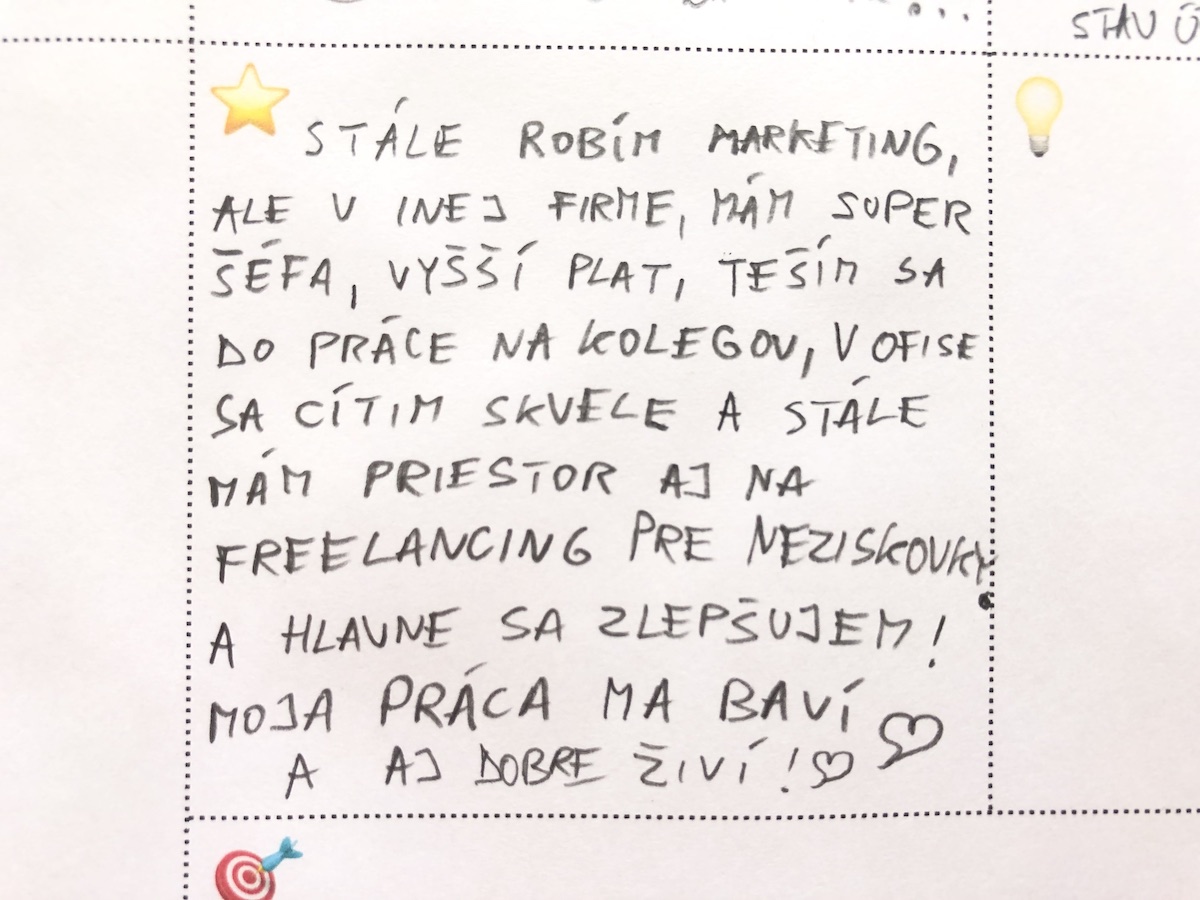 STAV
STÁLE ROBÍM MARKETING,
ALE V INEJ FIRME, MÁM SUPER
ŠÉFA, VYŠŠÍ PLAT, TEŠÍM SA
DO PRÁCE NA KOLEGOV, V OFISE
SA CÍTIM SKVELE A STÁLE
MÁM PRIESTOR AJ NA
FREELANCING PRE NEZISKOVKY
A HLAVNE SA ZLEPŠUJEM!
MOJA PRÁCA MA BAVÍ
A AJ DOBRE ŽIVÍ!